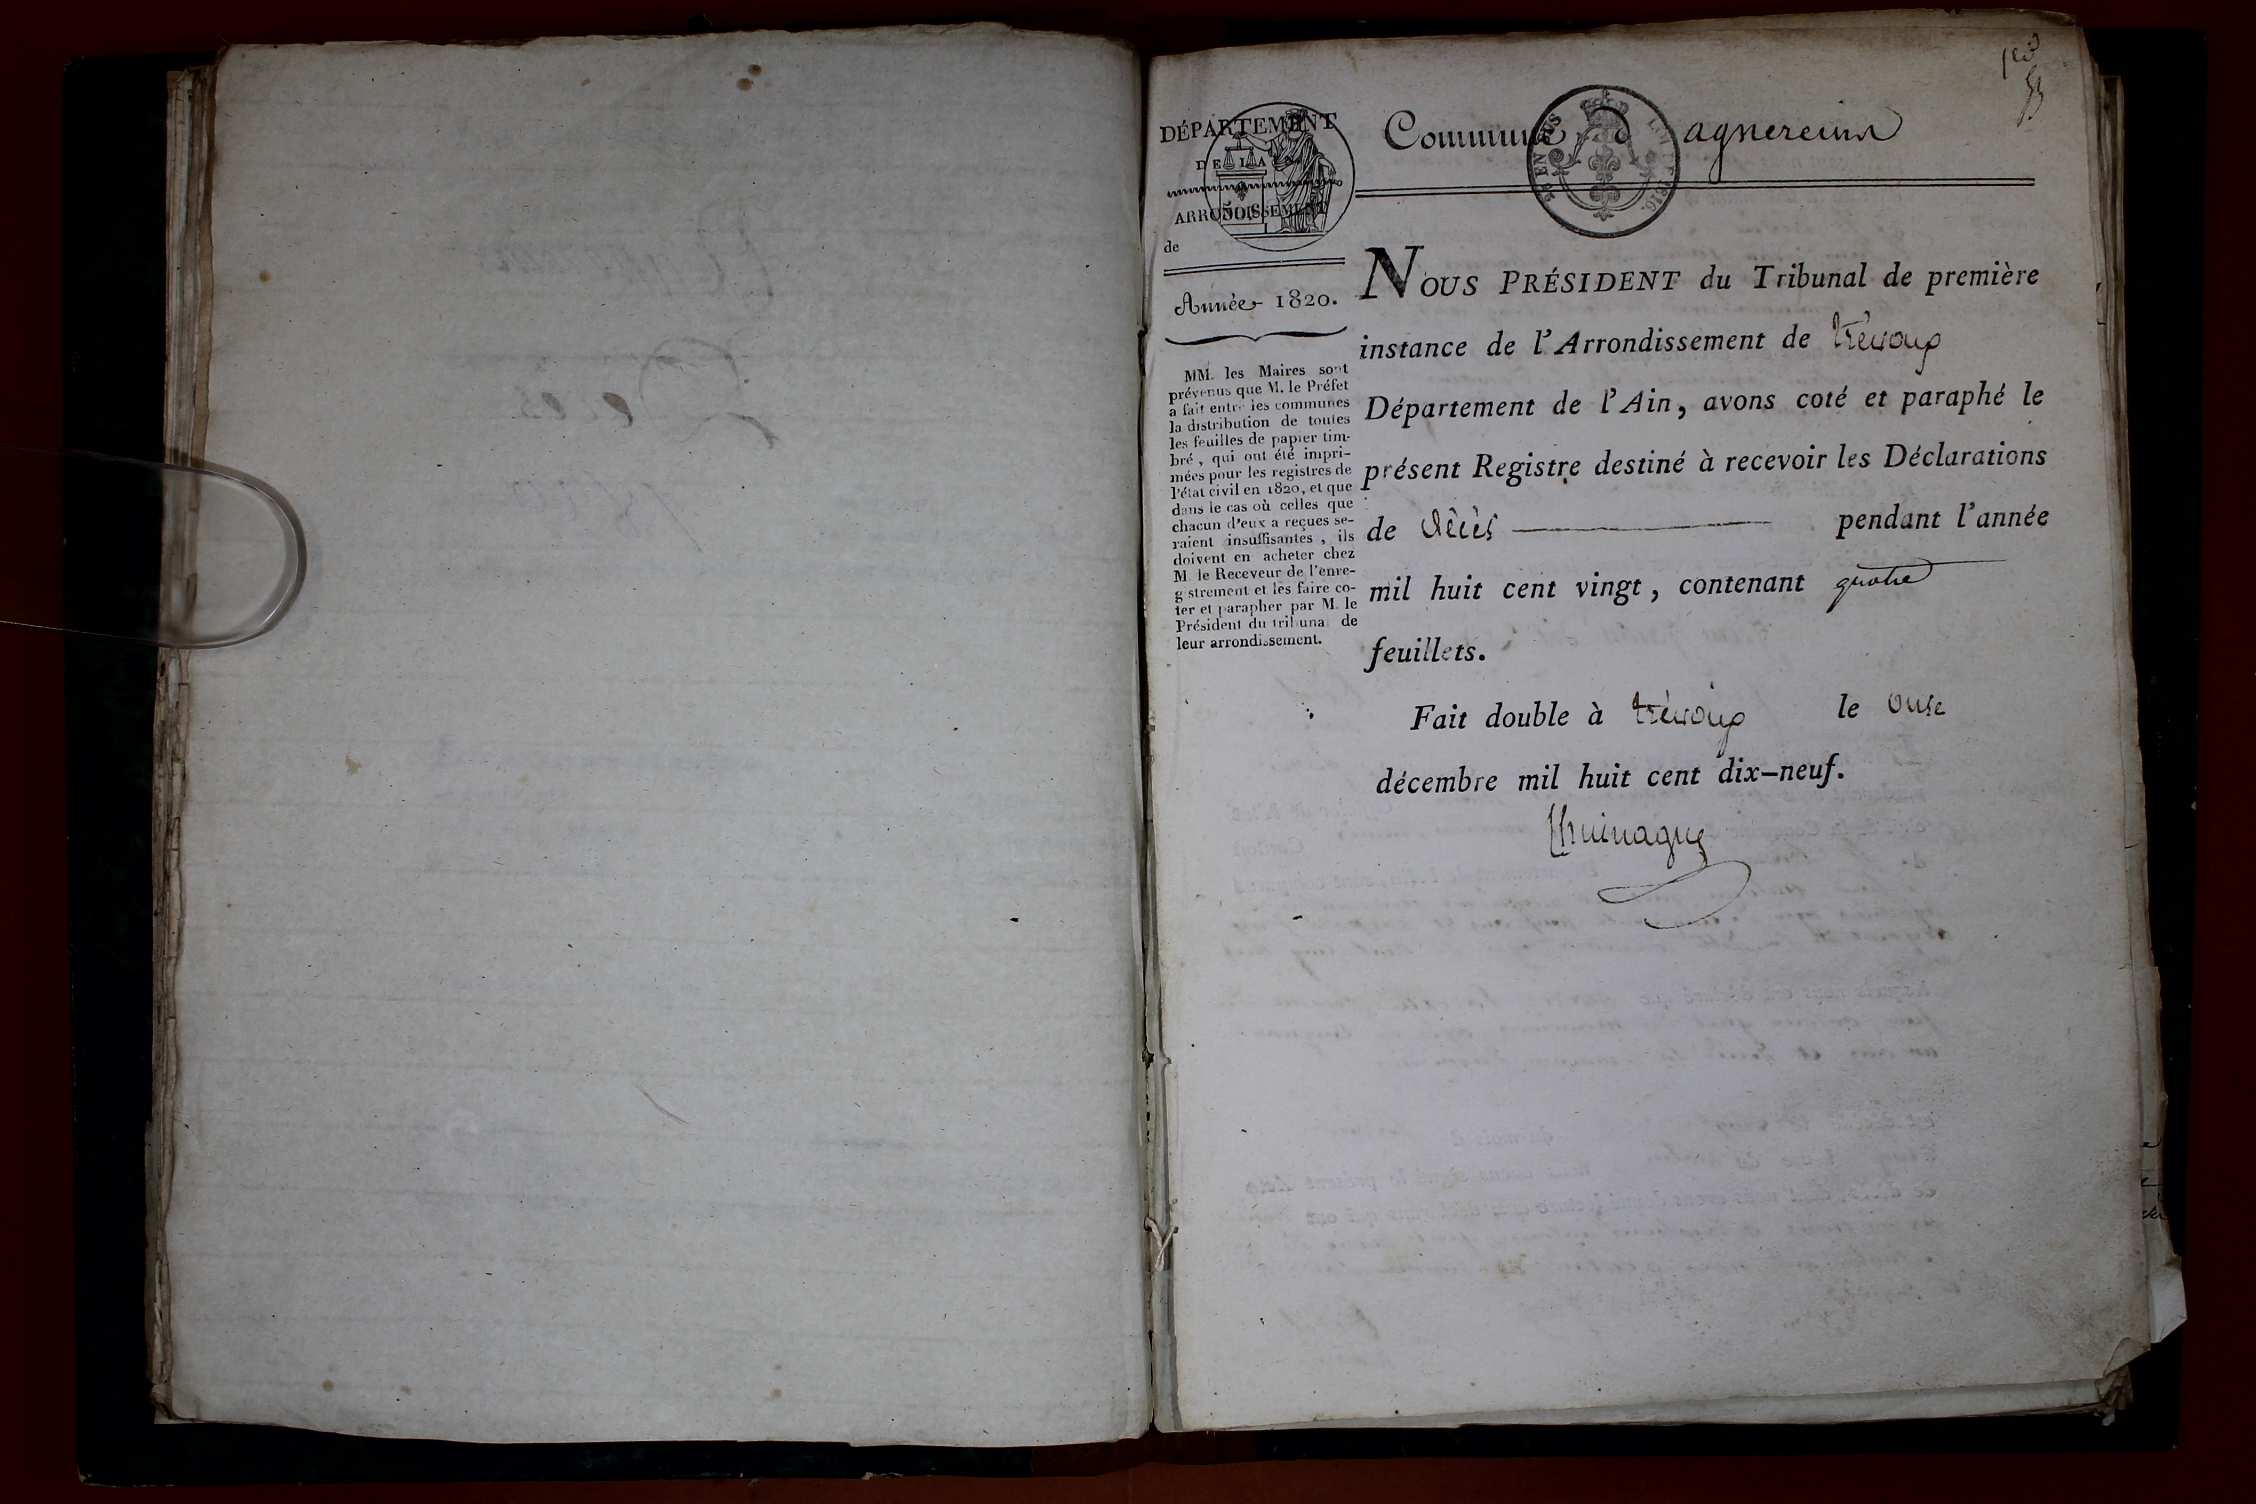 DÉPARTEMENT
DE LA
ARRONDISSEMENT
50
de
Année 1820.
MM. les Maires sont
prévenus que M. le Préfet
a fait entre les communes
la distribution de toutes
les feuilles de papier tim-
bré, qui ont été impri-
mées pour les registres de
l'état civil en 1820, et que
dans le cas où celles que
chacun d'eux a reçues se-
raient insuffisantes, ils
doivent en acheter chez
M. le Receveur de l'enre-
gistrement et les faire co-
ter et parapher par M. le
Président du tribunal de
leur arrondissement.
Commune d agnereins
EN SUS
1816.
NOUS PRÉSIDENT du Tribunal de première
instance de l'Arrondissement de trévoux
Département de l'Ain, avons coté et paraphé le
présent Registre destiné à recevoir les Déclarations
de décès pendant l'année
mil huit cent vingt, contenant quatre
feuillets.
Fait double à trévoux le onse
décembre mil huit cent dix-neuf.